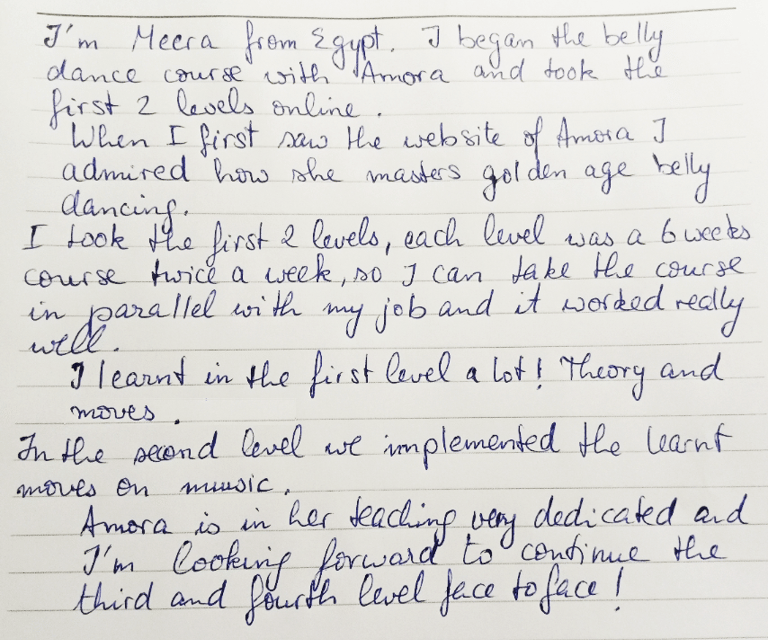 I'm Meera from Egypt. I began the belly
dance course with Amora and took the
first 2 levels online.
When I first saw the website of Amora I
admired how she masters golden age belly
dancing.
I took the first 2 levels, each level was a 6 weeks
course twice a week, so I can take the course
in parallel with my job and it worked really
well.
I learnt in the first level a lot! Theory and
moves.
In the second level we implemented the learnt
moves on muusic.
Amora is in her teaching very dedicated and
I'm looking forward to continue the
third and fourth level face to face!